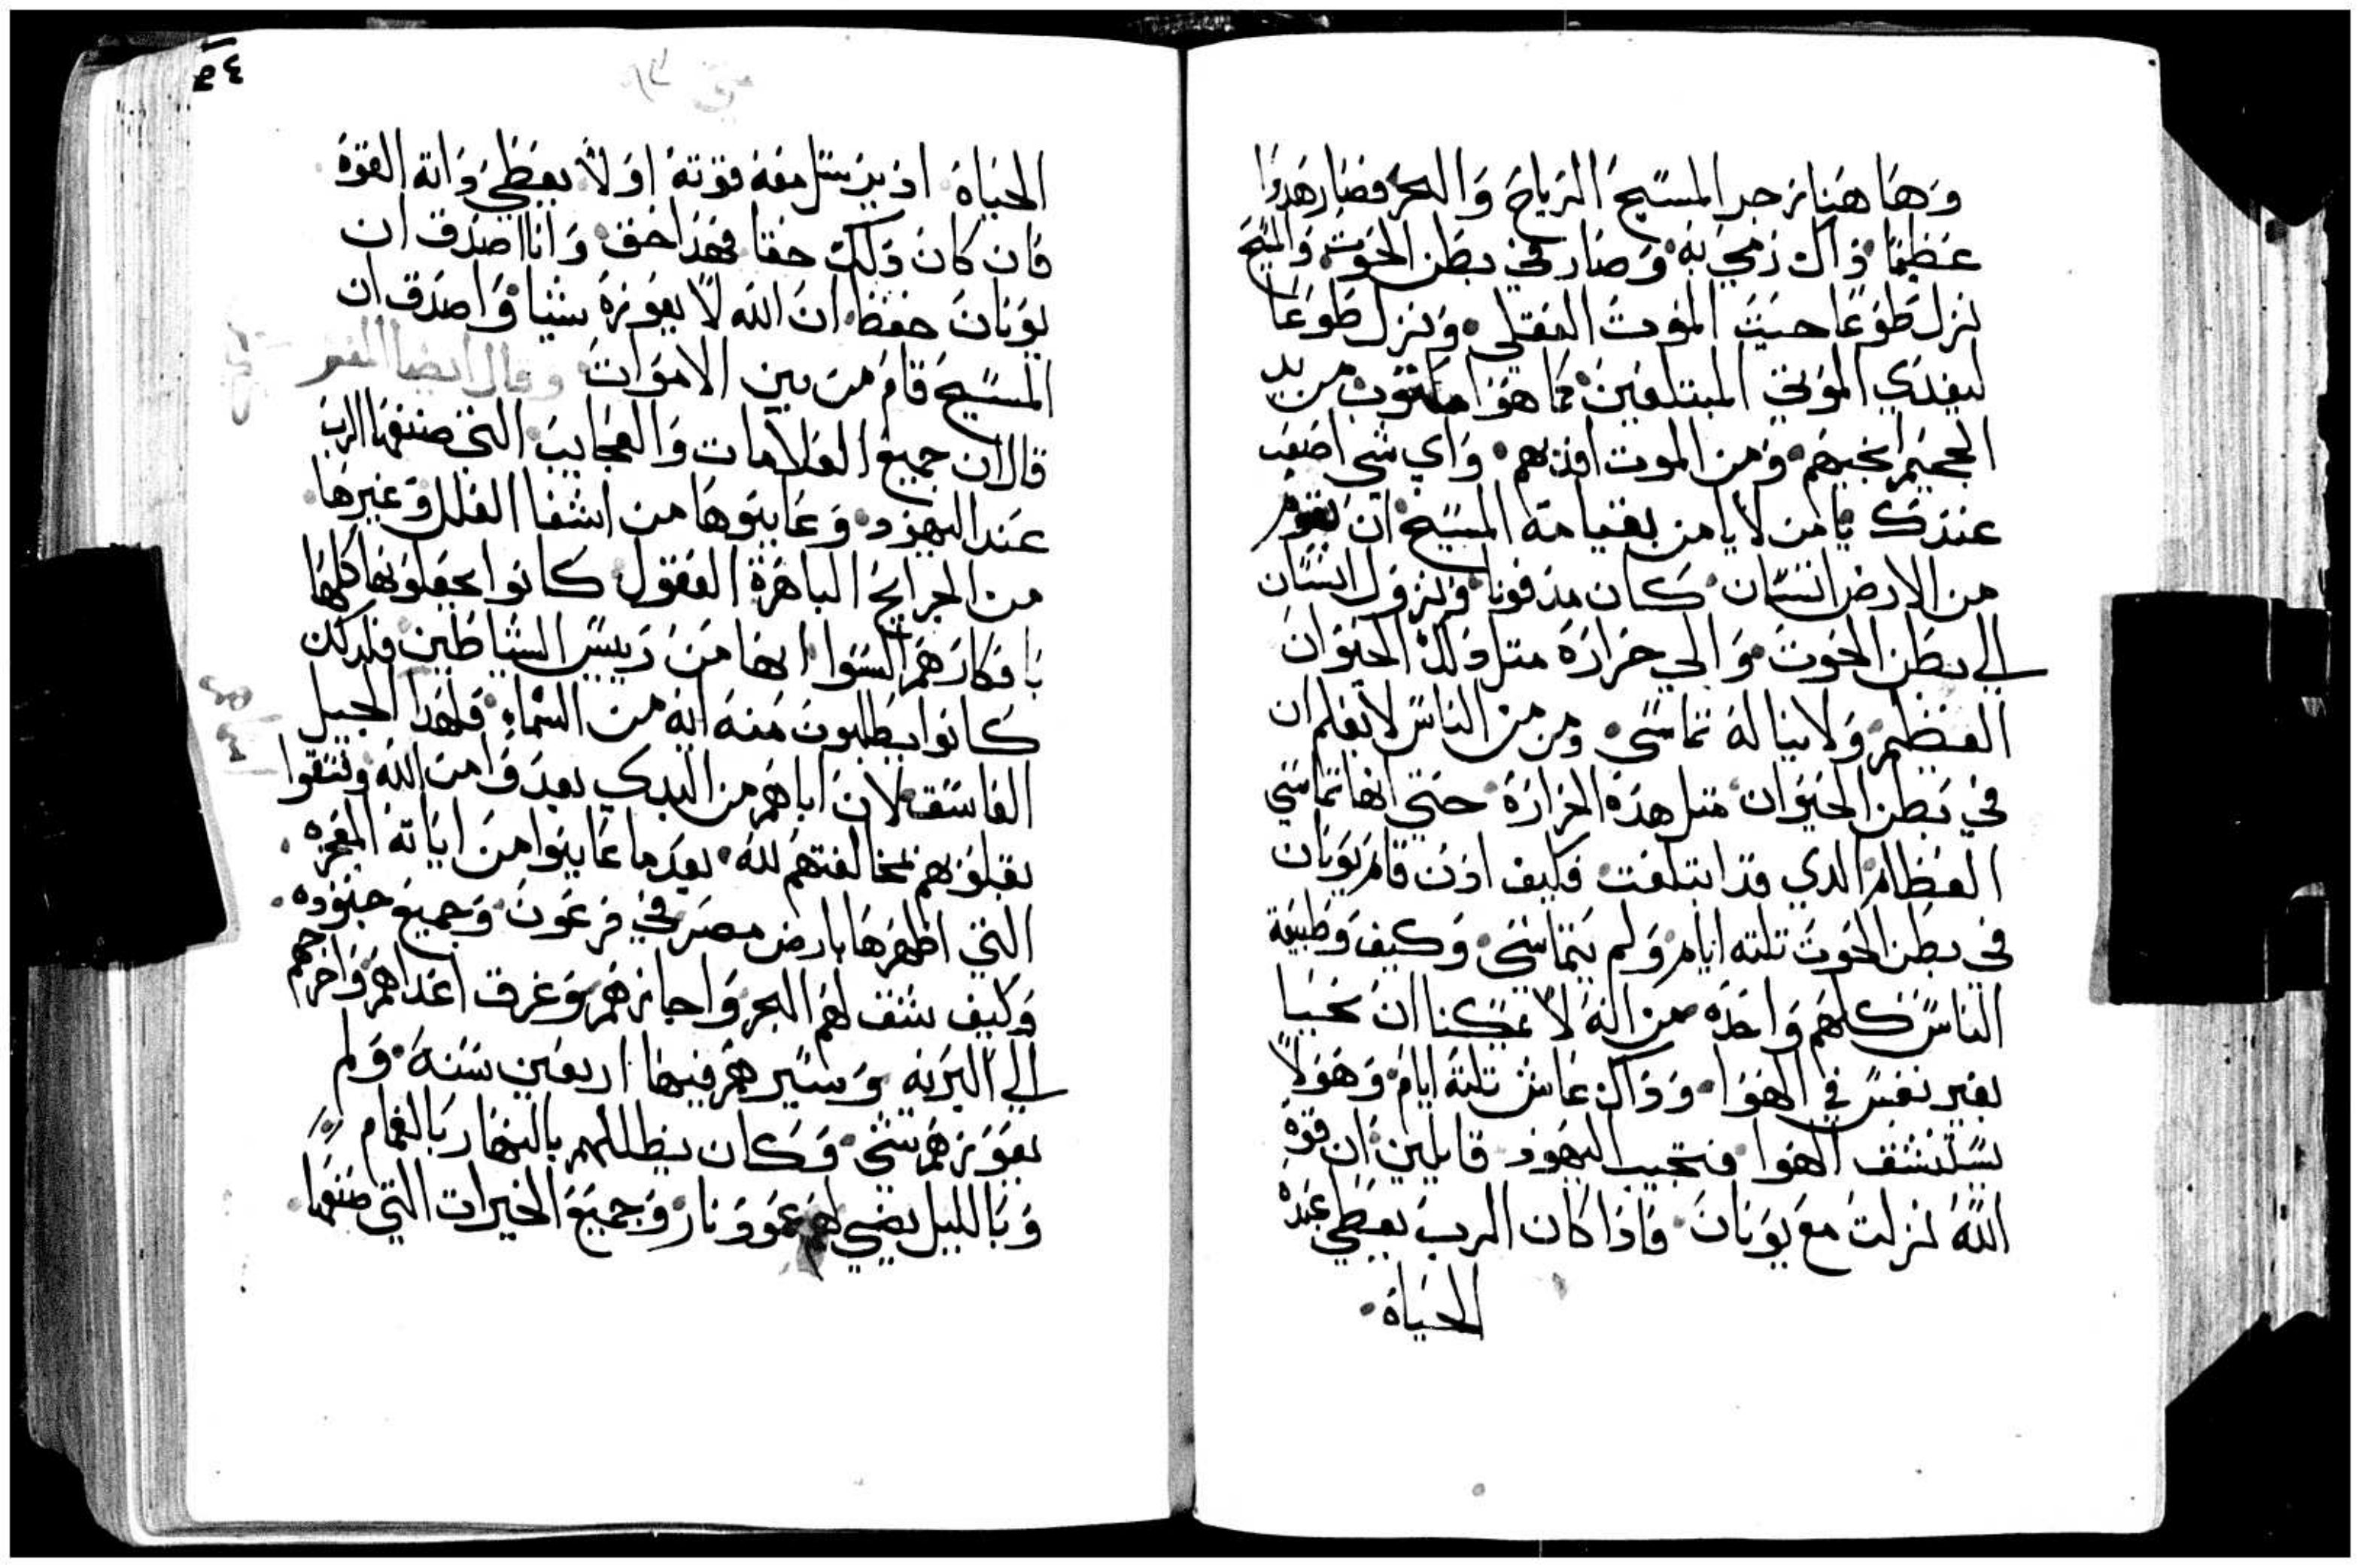 وهاهنا زجر المسيح الرياح والبحر فصار هدوا
عظيما ذاك رمي به وصار في بطن الحوت والمسيح
نزل طوعا حيث الموت العقلي ونزل طوعا
ليفدي الموتي المبتلعين كما هو مكتوب من يد
الجحيم انجيهم ومن الموت افديهم واي شي اصعب
عندك يا من لا يامن بقيامة المسيح ان يقوم
من الارض انسان كان مدفونا ونزول انسان
الي بطن الحوت والي حرارة مثل ولك الحيوان
العظيم ولا يناله تماسي ومن من الناس لا يعلم ان
في بطن الحيوان مثل هذه الحرارة حتي انها تماسي
العظام الدي قد ابتلعت فكيف اذن قام يونان
في بطن الحوت تلته ايام ولم يتماسي وكيف وطبيعة
الناس كلهم واحده من اله لا يمكنا ان نحيا
بغير نفس في الهوا وذاك عاش تلته ايام وهولا
يستنشق الهوا فتجيب اليهود قايلين ان قوة
الله نزلت مع يونان فاذا كان الرب يعطي عبده
الحياة
٣٤
متي
الحياة اذ يرسل معه قوته اولا يعطي ذاته القوة
فان كان ذلك حقا فهذا حق وانا اصدق ان
يونان حفظ ان الله لا يعوزه شيا واصدق ان
المسيح قام من بين الاموات وقال ايضا المفسر
قال ان جميع العلامات والعجايب التي صنعها الرب
عند اليهود وعاينوها من اشفا العلل وغيرها
من الجرايح الباهرة العقول كانوا يجعلونها كلها
بافكارهم السوا انها من رييس الشياطين فلذلك
كانوا يطلبون منه ايه من السماء فلهذا الجيل
الفاسق لان اباهم من البدي بعدوا من الله وشقوا
بقلوبهم لمخالفتهم لله بعد ما عاينوا من اياته المعجزه
التي اظهرها بارض مصر في فرعون وجميع جنوده
وكيف شقف لهم البحر واجازهم وغرق اعداهم واخرجهم
الي البريه وسيرهم فيها اربعين سنه ولم
يعوزهم شي وكان يظللهم بالنهار بالغمام
وبالليل يضي لهم عمود نار وجميع الخيرات التي صنعها